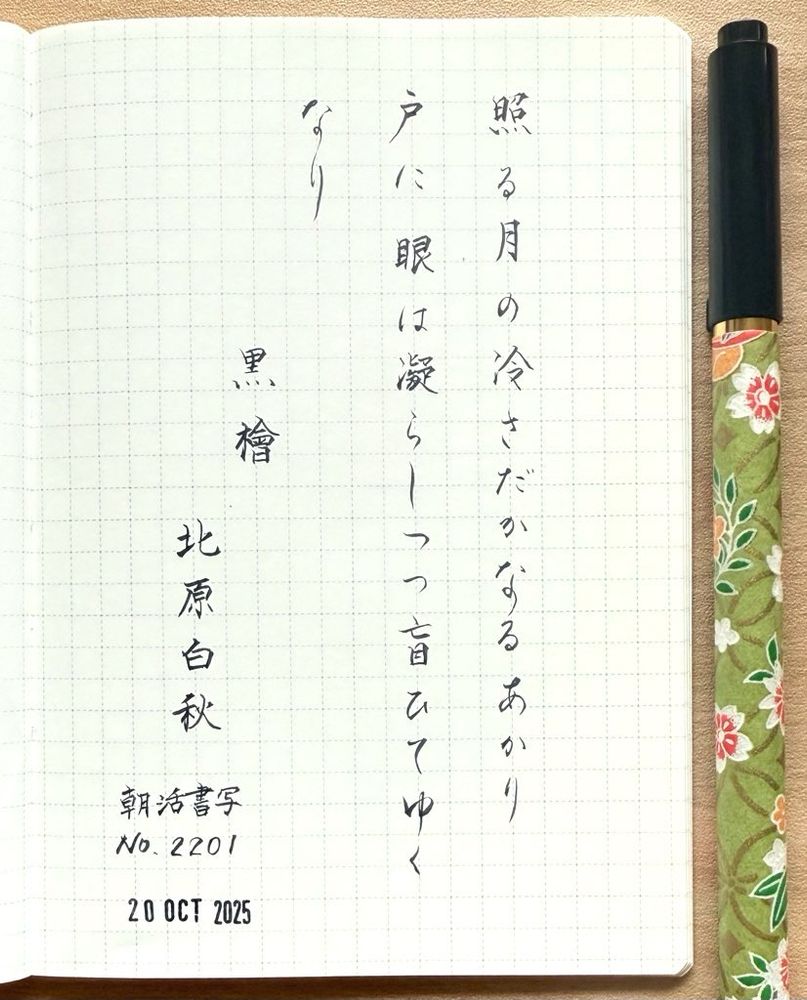 照る月の冷さだかなるあかり
戸に眼は凝らしつつ盲ひてゆく
なり
黒檜
北原白秋
朝活書写
No. 2201
20 OCT 2025